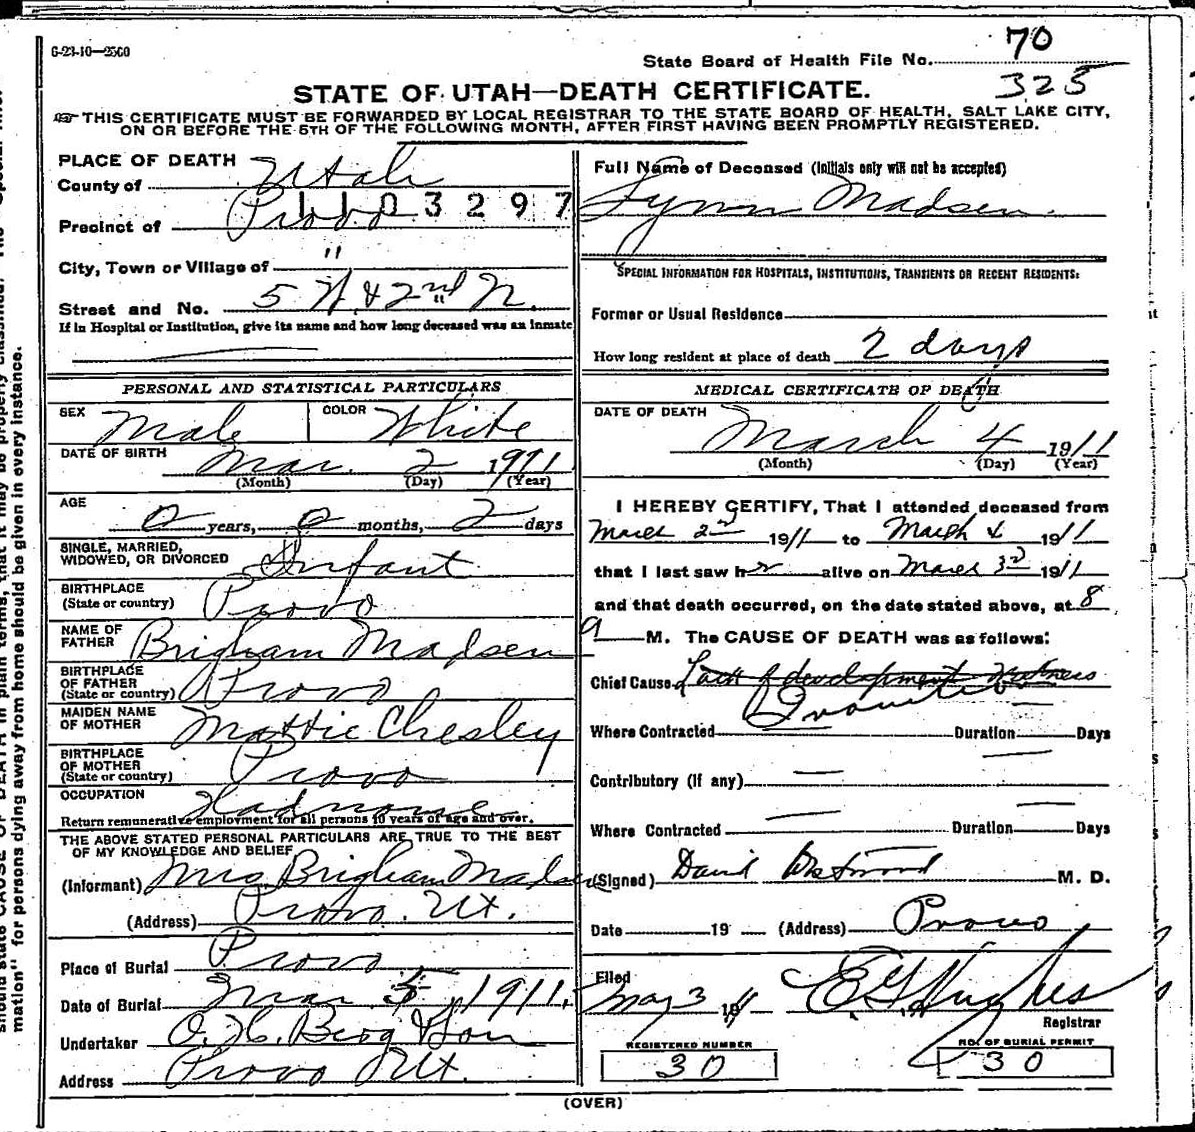 6-23-10—2500
State Board of Health File No. 70
325
STATE OF UTAH—DEATH CERTIFICATE.
THIS CERTIFICATE MUST BE FORWARDED BY LOCAL REGISTRAR TO THE STATE BOARD OF HEALTH, SALT LAKE CITY,
ON OR BEFORE THE 5TH OF THE FOLLOWING MONTH, AFTER FIRST HAVING BEEN PROMPTLY REGISTERED.
PLACE OF DEATH
County of Utah
1103297
Precinct of Provo
City, Town or Village of "
Street and No. 5 W & 2nd N.
If in Hospital or Institution, give its name and how long deceased was an inmate
PERSONAL AND STATISTICAL PARTICULARS
SEX Male COLOR White
DATE OF BIRTH Mar. 2 1911
(Month) (Day) (Year)
AGE 0 years, 0 months, 2 days
SINGLE, MARRIED,
WIDOWED, OR DIVORCED Infant
BIRTHPLACE
(State or country) Provo
NAME OF
FATHER Brigham Madsen
BIRTHPLACE
OF FATHER
(State or country) Provo
MAIDEN NAME
OF MOTHER Mattie Chesley
BIRTHPLACE
OF MOTHER
(State or country) Provo
OCCUPATION Had none
Return remunerative employment for all persons 10 years of age and over.
THE ABOVE STATED PERSONAL PARTICULARS ARE TRUE TO THE BEST
OF MY KNOWLEDGE AND BELIEF
(Informant) Mrs Brigham Madsen
(Address) Provo. Ut.
Place of Burial Provo
Date of Burial Mar 5, 1911.
Undertaker O. H. Berg & Son
Address Provo Ut.
Full Name of Deceased (Initials only will not be accepted)
Lynn Madsen.
SPECIAL INFORMATION FOR HOSPITALS, INSTITUTIONS, TRANSIENTS OR RECENT RESIDENTS:
Former or Usual Residence
How long resident at place of death 2 days
MEDICAL CERTIFICATE OF DEATH
DATE OF DEATH March 4 1911
(Month) (Day) (Year)
I HEREBY CERTIFY, That I attended deceased from
March 2nd 1911 to March 4 1911
that I last saw her alive on March 3rd 1911
and that death occurred, on the date stated above, at 8
a M. The CAUSE OF DEATH was as follows:
Chief Cause Lack of development
Where Contracted Duration Days
Contributory (if any)
Where Contracted Duration Days
(Signed) David Westwood M. D.
Date 19 (Address) Provo
Filed
May 3 1911 E. G. Hughes
Registrar
REGISTERED NUMBER
30
NO. OF BURIAL PERMIT
30
(OVER)
mation" for persons dying away from home should be given in every instance.